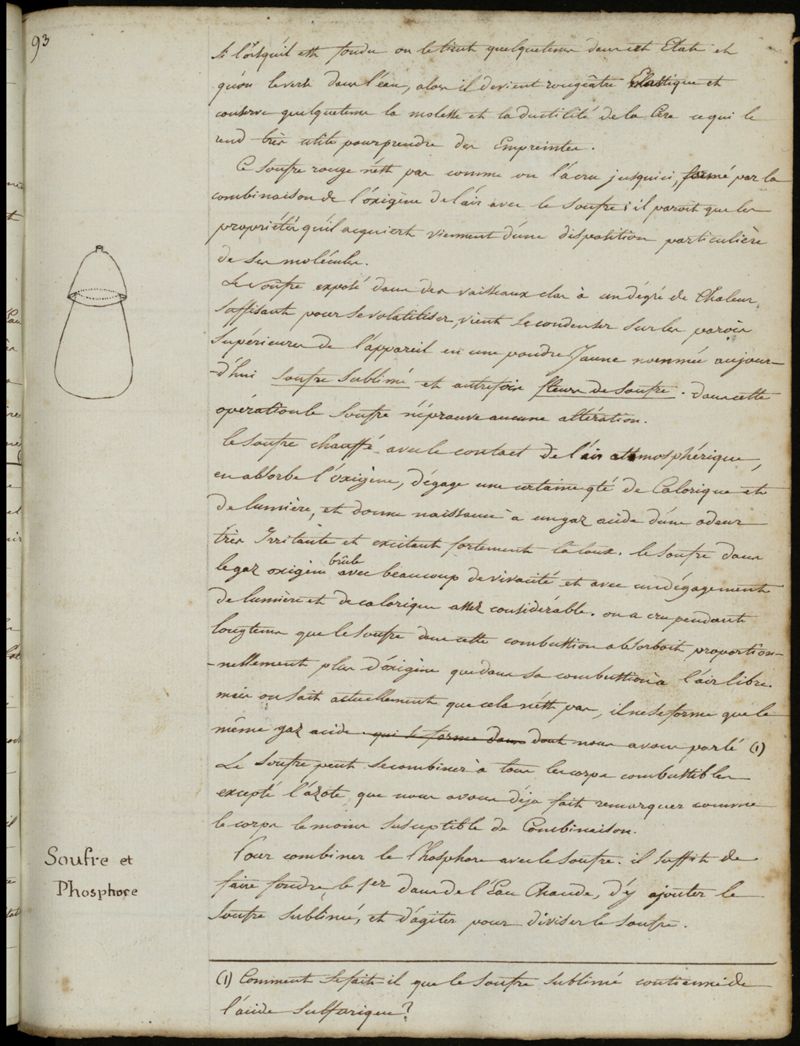 93
si lorsqu'il est fondu on le tient quelquetems dans cet Etat et
qu'on le verse dans l'eau, alors il devient rougeâtre Elastique et
conserve quelquetems la molesse et la ductilité de la Cire ce qui le
rend très utile pour prendre des Empreintes.
Ce soufre rouge n'est pas comme on l'a cru jusqu'ici, formé par la
combinaison de l'oxigène de l'air avec le soufre ; il paroit que les
propriétés qu'il acquiert viennent d'une disposition particulière
de ses molécules.
Le soufre exposé dans des vaisseaux clos à un dégré de Chaleur
suffisant pour se volatiliser, vient se condenser sur les parois
supérieures de l'appareil en une poudre Jaune nommée aujour-
-d'hui soufre sublimé et autrefois fleurs de soufre. dans cette
opération le soufre n'éprouve aucune altération.
le soufre chauffé avec le contact de l'air atmosphérique,
en absorbe l'oxigène, dégage une certaine qté de Calorique et
de lumière, et donne naissance à un gaz acide d'une odeur
très Irritante et excitant fortement la toux. le soufre dans
le gaz oxigène brûle avec beaucoup de vivacité et avec un dégagement
de lumière et de calorique assez considérable. on a cru pendant
longtems que le soufre dans cette combustion absorboit proportion-
-nellement plus d'oxigène que dans sa combustion à l'air libre.
mais on sait actuellement que cela n'est pas, il ne se forme que le
même gaz acide qui se forme dans dont nous avons parlé (1)
Le soufre peut se combiner à tous les corps combustibles
excepté l'azote, que nous avons déja fait remarquer comme
le corps le moins susceptible de Combinaison.
Soufre et
Phosphore
Pour combiner le Phosphore avec le soufre. il suffit de
faire fondre le 1er dans de l'Eau Chaude, d'y ajouter le
soufre sublimé, et d'agiter pour diviser le soufre.
(1) Comment se fait-il que le soufre sublimé contienne de
l'acide sulfurique ?